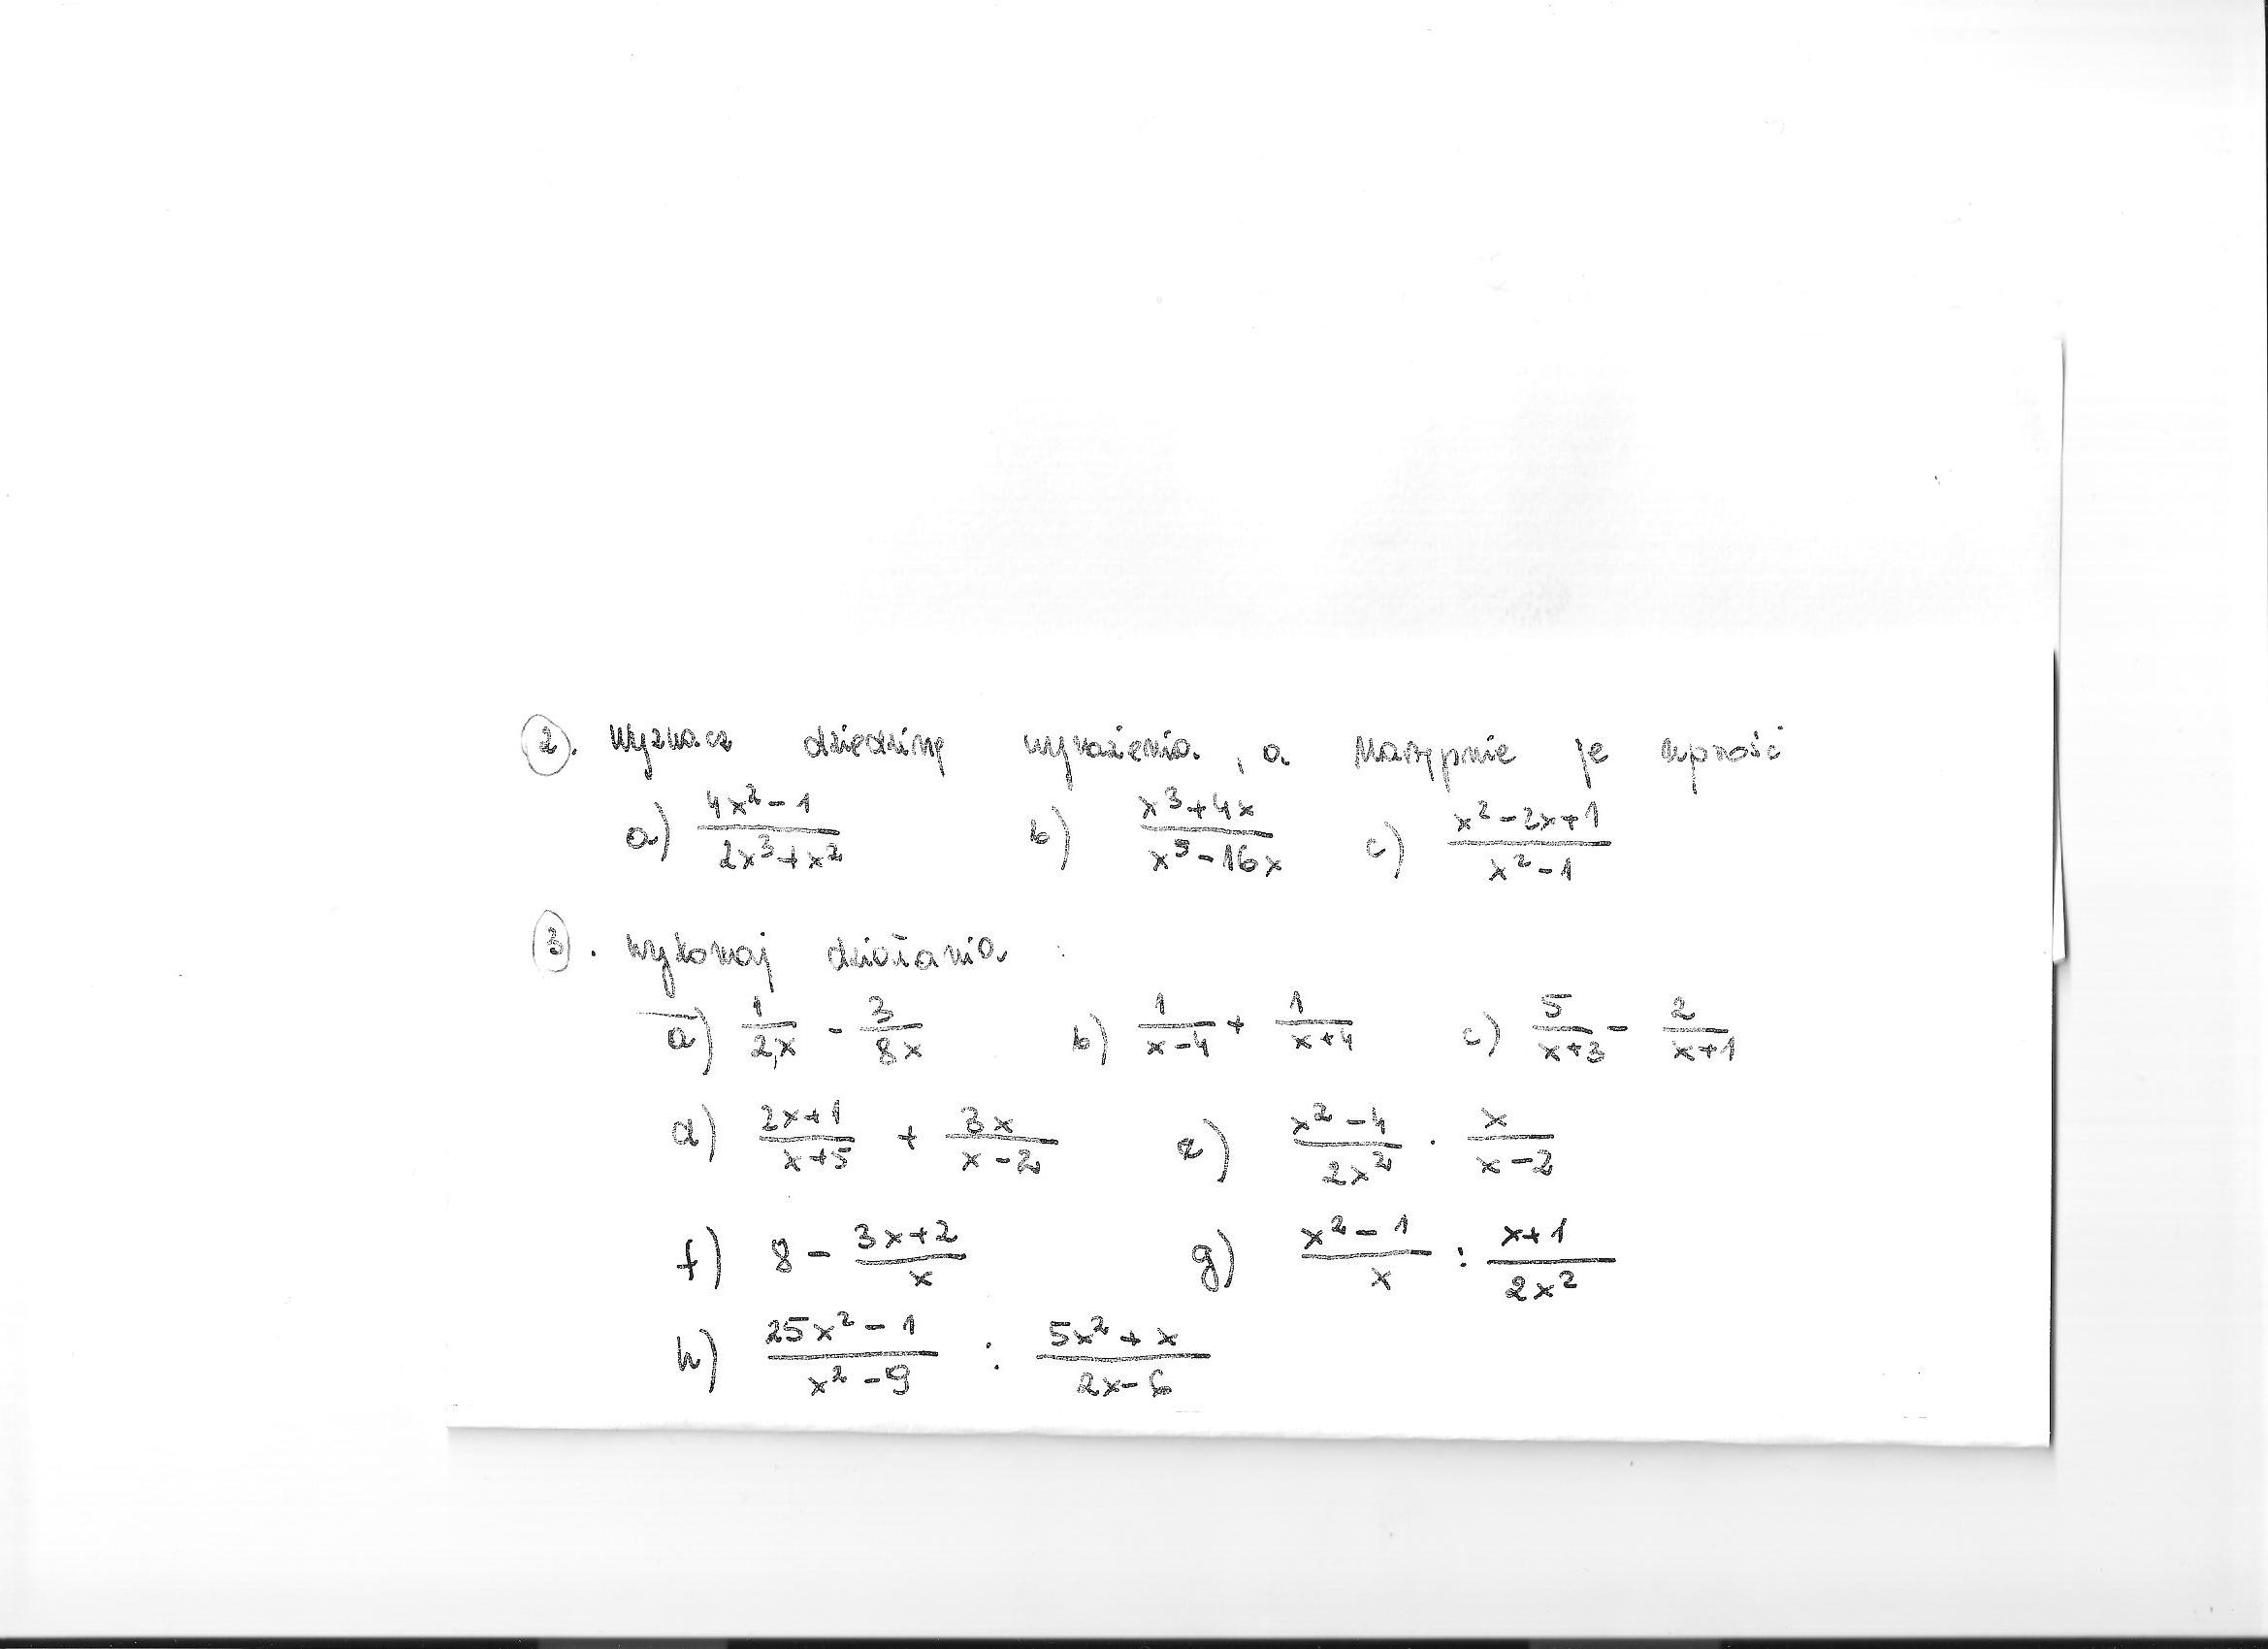 2. Wyznacz dziedzinę wyrażenia, a następnie je uprość
a) \frac{4x^2-1}{2x^3+x^2} b) \frac{x^3+4x}{x^5-16x} c) \frac{x^2-2x+1}{x^2-1}
3. Wykonaj działania:
a) \frac{1}{2x} - \frac{3}{8x} b) \frac{1}{x-4} + \frac{1}{x+4} c) \frac{5}{x+3} - \frac{2}{x+1}
d) \frac{2x+1}{x+5} + \frac{3x}{x-2} e) \frac{x^2-4}{2x^2} · \frac{x}{x-2}
f) 8 - \frac{3x+2}{x} g) \frac{x^2-1}{x} : \frac{x+1}{2x^2}
h) \frac{25x^2-1}{x^2-9} : \frac{5x^2+x}{2x-6}